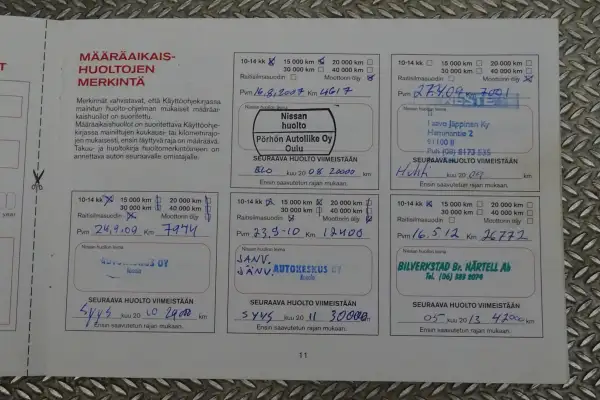 MÄÄRÄAIKAIS-
HUOLTOJEN
MERKINTÄ
Merkinnät vahvistavat, että Käyttöohjekirjassa
mainitun huolto-ohjelman mukaiset määräai-
kaishuollot on suoritettu.
Määräaikaishuollot on suoritettava Käyttöohje-
kirjassa mainittujen kuukausi- tai kilometriraja-
jen mukaisesti, ensin täyttyvä raja on määräävä.
Takuu- ja huoltokirja huoltomerkintöineen on
annettava auton seuraavalle omistajalle.
10-14 kk 15 000 km 20 000 km
30 000 km 40 000 km
Raitisilmasuodin Moottorin öljy
Pvm 16.8.2007 Km 4617
Nissan huollon leima
Nissan
huolto
Pörhön Autoliike Oy
Oulu
SEURAAVA HUOLTO VIIMEISTÄÄN
ELO kuu 20 08 20000 km
Ensin saavutetun rajan mukaan.
10-14 kk 15 000 km 20 000 km
30 000 km 40 000 km
Raitisilmasuodin Moottorin öljy
Pvm 27.4.09 Km 7001
Nissan huollon leima
NESTE
Jäppinen Ky
Haminantie 2
SEURAAVA HUOLTO VIIMEISTÄÄN
Huhti kuu 20 km
Ensin saavutetun rajan mukaan.
10-14 kk 15 000 km 20 000 km
30 000 km 40 000 km
Raitisilmasuodin Moottorin öljy
Pvm 24.9.09 Km 7974
Nissan huollon leima
AUTOKESKUS OY
SEURAAVA HUOLTO VIIMEISTÄÄN
Syys kuu 20 10 km
Ensin saavutetun rajan mukaan.
10-14 kk 15 000 km 20 000 km
30 000 km 40 000 km
Raitisilmasuodin Moottorin öljy
Pvm 23.9-10 Km 12400
Nissan huollon leima
AUTOKESKUS OY
SEURAAVA HUOLTO VIIMEISTÄÄN
SYYS kuu 20 11 30000 km
Ensin saavutetun rajan mukaan.
10-14 kk 15 000 km 20 000 km
30 000 km 40 000 km
Raitisilmasuodin Moottorin öljy
Pvm 16.5.12 Km 26772
Nissan huollon leima
BILVERKSTAD Br. NÄRTELL Ab
SEURAAVA HUOLTO VIIMEISTÄÄN
05 kuu 20 13 42000 km
Ensin saavutetun rajan mukaan.
11